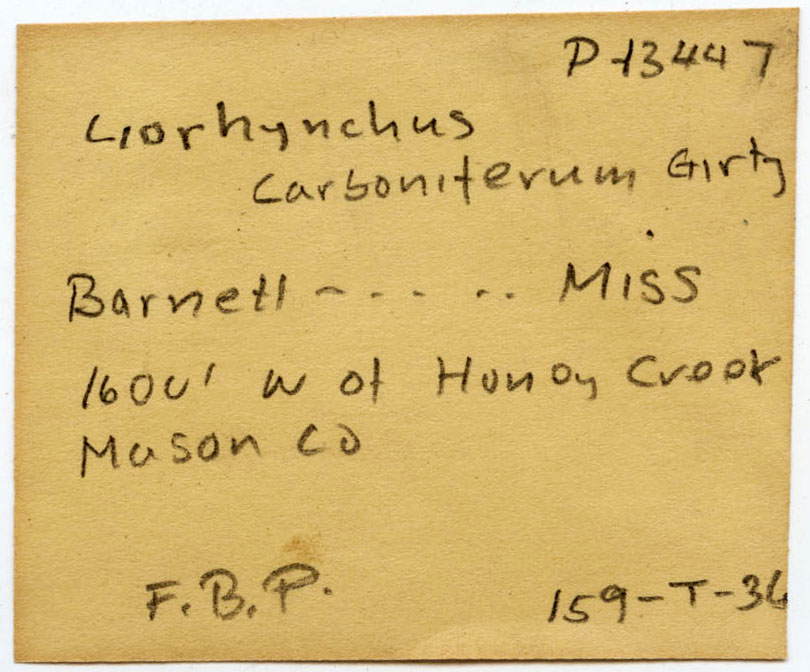 P-13447
Liorhynchus
Carboniferum Girty
Barnett - - - - - Miss
1600' W of Honey Creek
Mason Co
F.B.P.
159-T-36